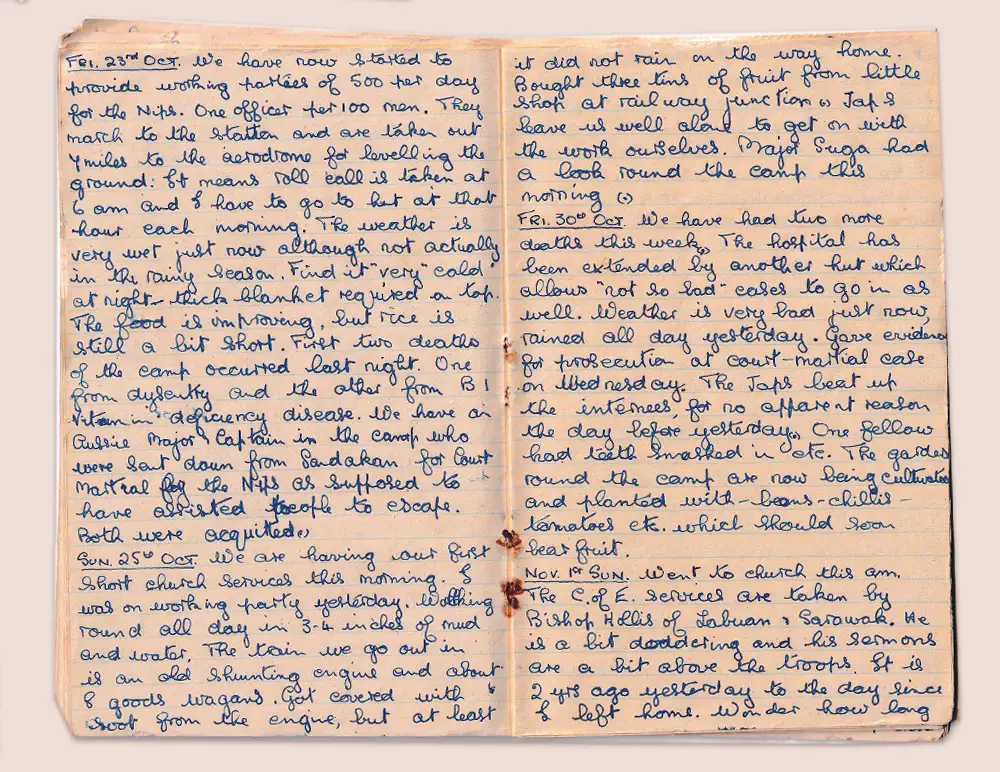 FRI. 23rd OCT. We have now started to
provide working parties of 500 per day
for the Nips. One officer per 100 men. They
march to the station and are taken out
7 miles to the aerodrome for levelling the
ground. It means roll call is taken at
6 am and I have to go to hut at that
hour each morning. The weather is
very wet just now although not actually
in the rainy season. Find it "very" cold
at night - thick blanket required on top.
The food is improving, but rice is
still a bit short. First two deaths
of the camp occurred last night. One
from dysentry and the other from B1
vitamin deficiency disease. We have an
Aussie Major & Captain in the camp who
were sent down from Sandakan for Court
Martial by the Nips as supposed to
have assisted people to escape.
Both were acquited.
SUN. 25th OCT. We are having our first
short church services this morning. I
was on working party yesterday. Walking
round all day in 3-4 inches of mud
and water. The train we go out in
is an old shunting engine and about
8 goods wagons. Got covered with
soot from the engine, but at least
it did not rain on the way home.
Bought three tins of fruit from little
shop at railway junction (.) Japs
leave us well alone to get on with
the work ourselves. Major Suga had
a look round the camp this
morning (.)
FRI. 30th OCT. We have had two more
deaths this week. The hospital has
been extended by another hut which
allows "not so bad" cases to go in as
well. Weather is very bad just now,
rained all day yesterday. Gave evidence
for prosecution at court-martial case
on Wednesday. The Japs beat up
the internees, for no apparent reason
the day before yesterday. One fellow
had teeth smashed in etc. The gardens
round the camp are now being cultivated
and planted with - beans - chillis -
tomatoes etc. which should soon
bear fruit.
NOV. 1st SUN. Went to church this am.
The C. of E. services are taken by
Bishop Hollis of Labuan & Sarawak. He
is a bit doddering and his sermons
are a bit above the troops. It is
2 yrs ago yesterday to the day since
I left home. Wonder how long